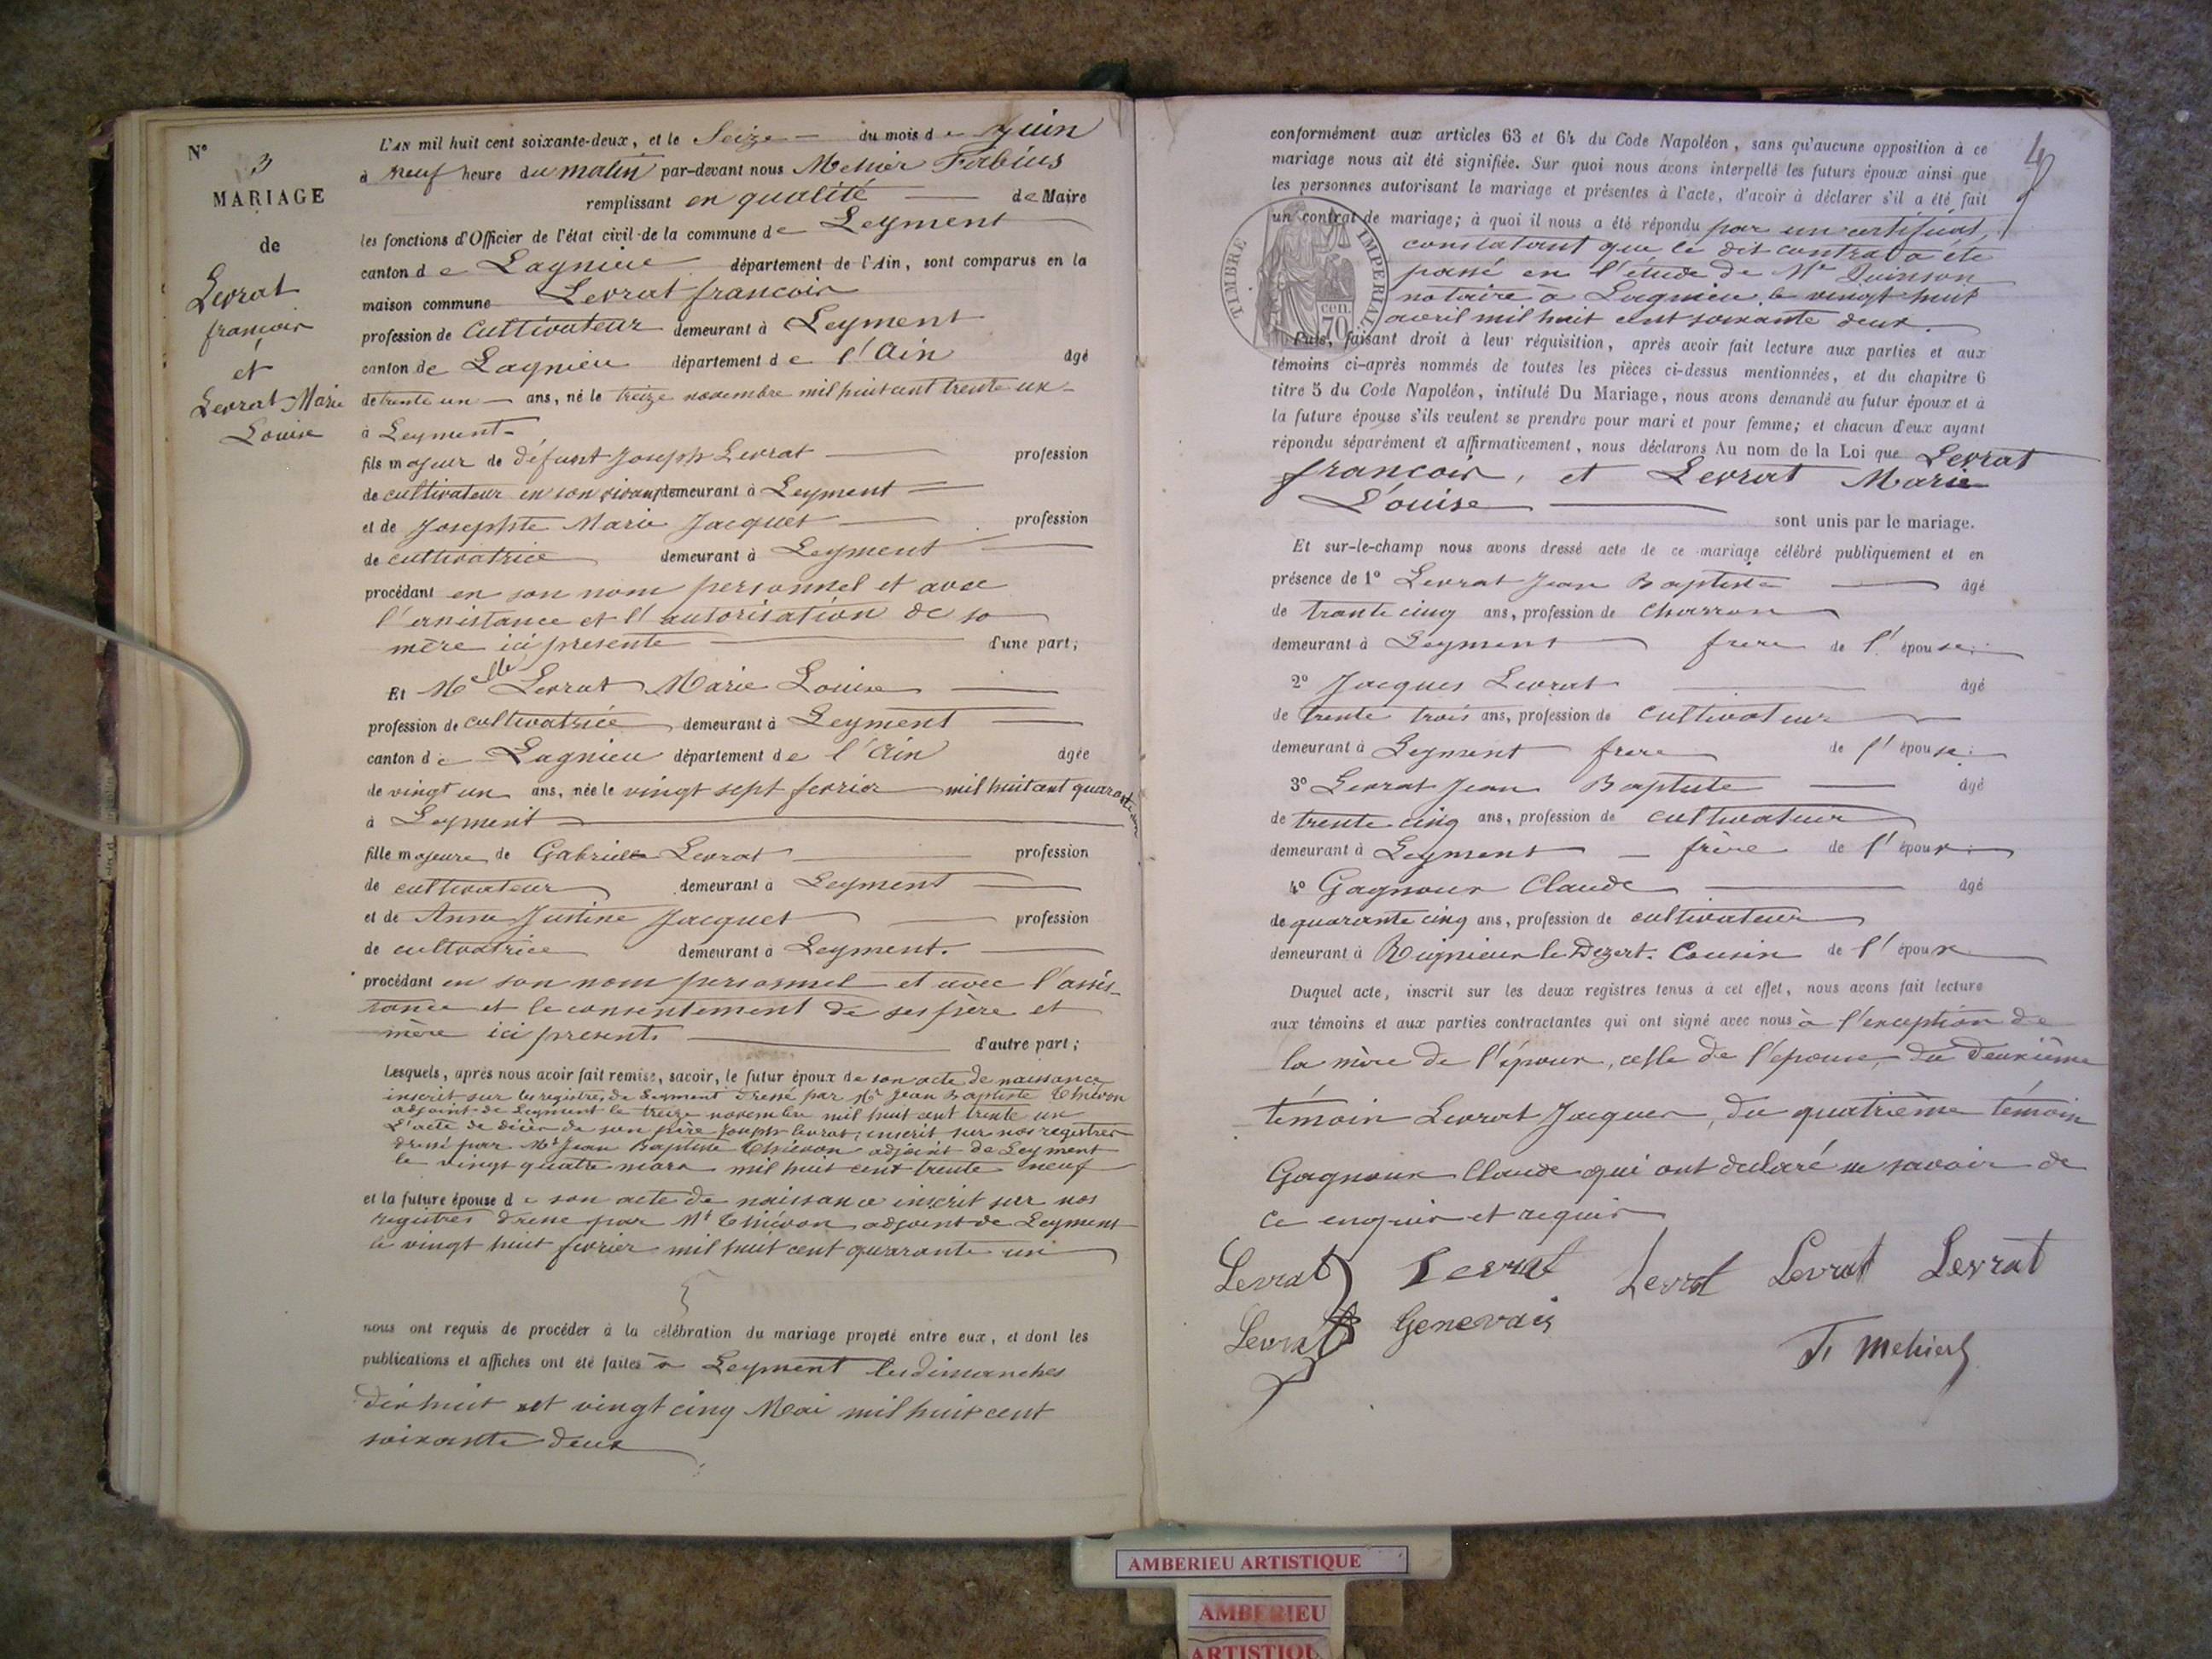 N°
3
MARIAGE
de
Levrat
francois
et
Levrat Marie
Louise
L'AN mil huit cent soixante-deux, et le Seize du mois de Juin
à neuf heure du matin par-devant nous Mehier Fabius
remplissant en qualité de Maire
les fonctions d'Officier de l'état civil de la commune de Leyment
canton de Lagnieu département de l'Ain, sont comparus en la
maison commune Levrat francois
profession de cultivateur demeurant à Leyment
canton de Lagnieu département de l'Ain âgé
de trente un ans, né le treize novembre mil huit cent trente un
à Leyment
fils majeur de défunt Joseph Levrat profession
de cultivateur en son vivant demeurant à Leyment
et de Josephte Marie Jacquet profession
de cultivatrice demeurant à Leyment
procédant en son nom personnel et avec
l'assistance et l'autorisation de sa
mère ici presente d'une part;
Et Melle Levrat Marie Louise
profession de cultivatrice demeurant à Leyment
canton de Lagnieu département de l'Ain âgée
de vingt un ans, née le vingt sept fevrier mil huit cent quarante un
à Leyment
fille majeure de Gabriel Levrat profession
de cultivateur demeurant à Leyment
et de Anne Justine Jacquet profession
de cultivatrice demeurant à Leyment.
procédant en son nom personnel et avec l'assis-
tance et le consentement de ses père et
mère ici presents d'autre part;
Lesquels, après nous avoir fait remise, savoir, le futur époux de son acte de naissance
inscrit sur les registres de Leyment dressé par Mr Jean Baptiste Thiévon
adjoint de Leyment le treize novembre mil huit cent trente un
L'acte de décès de son père Joseph levrat, inscrit sur nos registres
dressé par Mr Jean Baptiste Thiévon adjoint de Leyment
le vingt quatre mars mil huit cent trente neuf
et la future épouse de son acte de naissance inscrit sur nos
registres dressé par Mr Thiévon adjoint de Leyment
le vingt huit fevrier mil huit cent quarante un
nous ont requis de procéder à la célébration du mariage projeté entre eux, et dont les
publications et affiches ont été faites à Leyment les dimanches
dix huit et vingt cinq Mai mil huit cent
soixante deux
conformément aux articles 63 et 64 du Code Napoléon, sans qu'aucune opposition à ce
mariage nous ait été signifiée. Sur quoi nous avons interpellé les futurs époux ainsi que
les personnes autorisant le mariage et présentes à l'acte, d'avoir à déclarer s'il a été fait
un contrat de mariage; à quoi il nous a été répondu par un certificat
constatant que le dit contrat a été
passé en l'étude de Me Quinson
notaire à Lagnieu le vingt huit
avril mil huit cent soixante deux.
TIMBRE IMPERIAL
70 cen.
Puis, faisant droit à leur réquisition, après avoir fait lecture aux parties et aux
témoins ci-après nommés de toutes les pièces ci-dessus mentionnées, et du chapitre 6
titre 5 du Code Napoléon, intitulé Du Mariage, nous avons demandé au futur époux et à
la future épouse s'ils veulent se prendre pour mari et pour femme; et chacun d'eux ayant
répondu séparément et affirmativement, nous déclarons Au nom de la Loi que Levrat
francois, et Levrat Marie
Louise
sont unis par le mariage.
Et sur-le-champ nous avons dressé acte de ce mariage célébré publiquement et en
présence de 1° Levrat Jean Baptiste âgé
de trante cinq ans, profession de Charron
demeurant à Leyment frere de l'épouse
2° Jacques Levrat âgé
de trente trois ans, profession de cultivateur
demeurant à Leyment frere de l'épouse
3° Levrat Jean Baptiste âgé
de trente cinq ans, profession de cultivateur
demeurant à Leyment frère de l'époux
4° Gagnoux Claude âgé
de quarante cinq ans, profession de cultivateur
demeurant à Rignieux le Dezert. Cousin de l'époux
Duquel acte, inscrit sur les deux registres tenus à cet effet, nous avons fait lecture
aux témoins et aux parties contractantes qui ont signé avec nous à l'exception de
la mère de l'époux, celle de l'épouse, du deuxième
témoin Levrat Jacques, du quatrième témoin
Gagnoux Claude qui ont déclaré ne savoir de
ce enquis et requis
Levrat Levrat Levrat Levrat Levrat
Levrat Genevais
F. Mehier
AMBERIEU ARTISTIQUE
AMBERIEU
ARTISTIQU